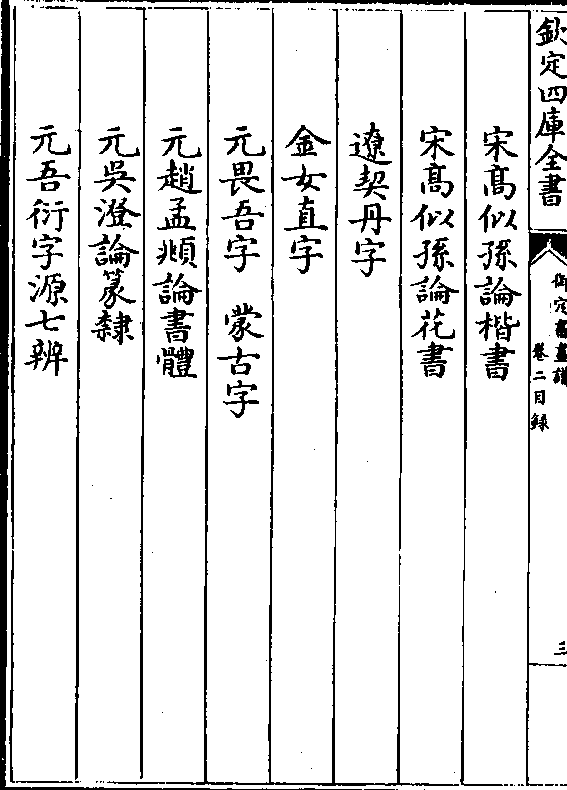 欽定四庫全書
御定書畫譜
卷二目録
三
宋髙似孫論楷書
宋髙似孫論花書
遼契丹字
金女直字
元畏吾字　蒙古字
元趙孟頫論書體
元吳澄論篆隸
元吾衍字源七辨